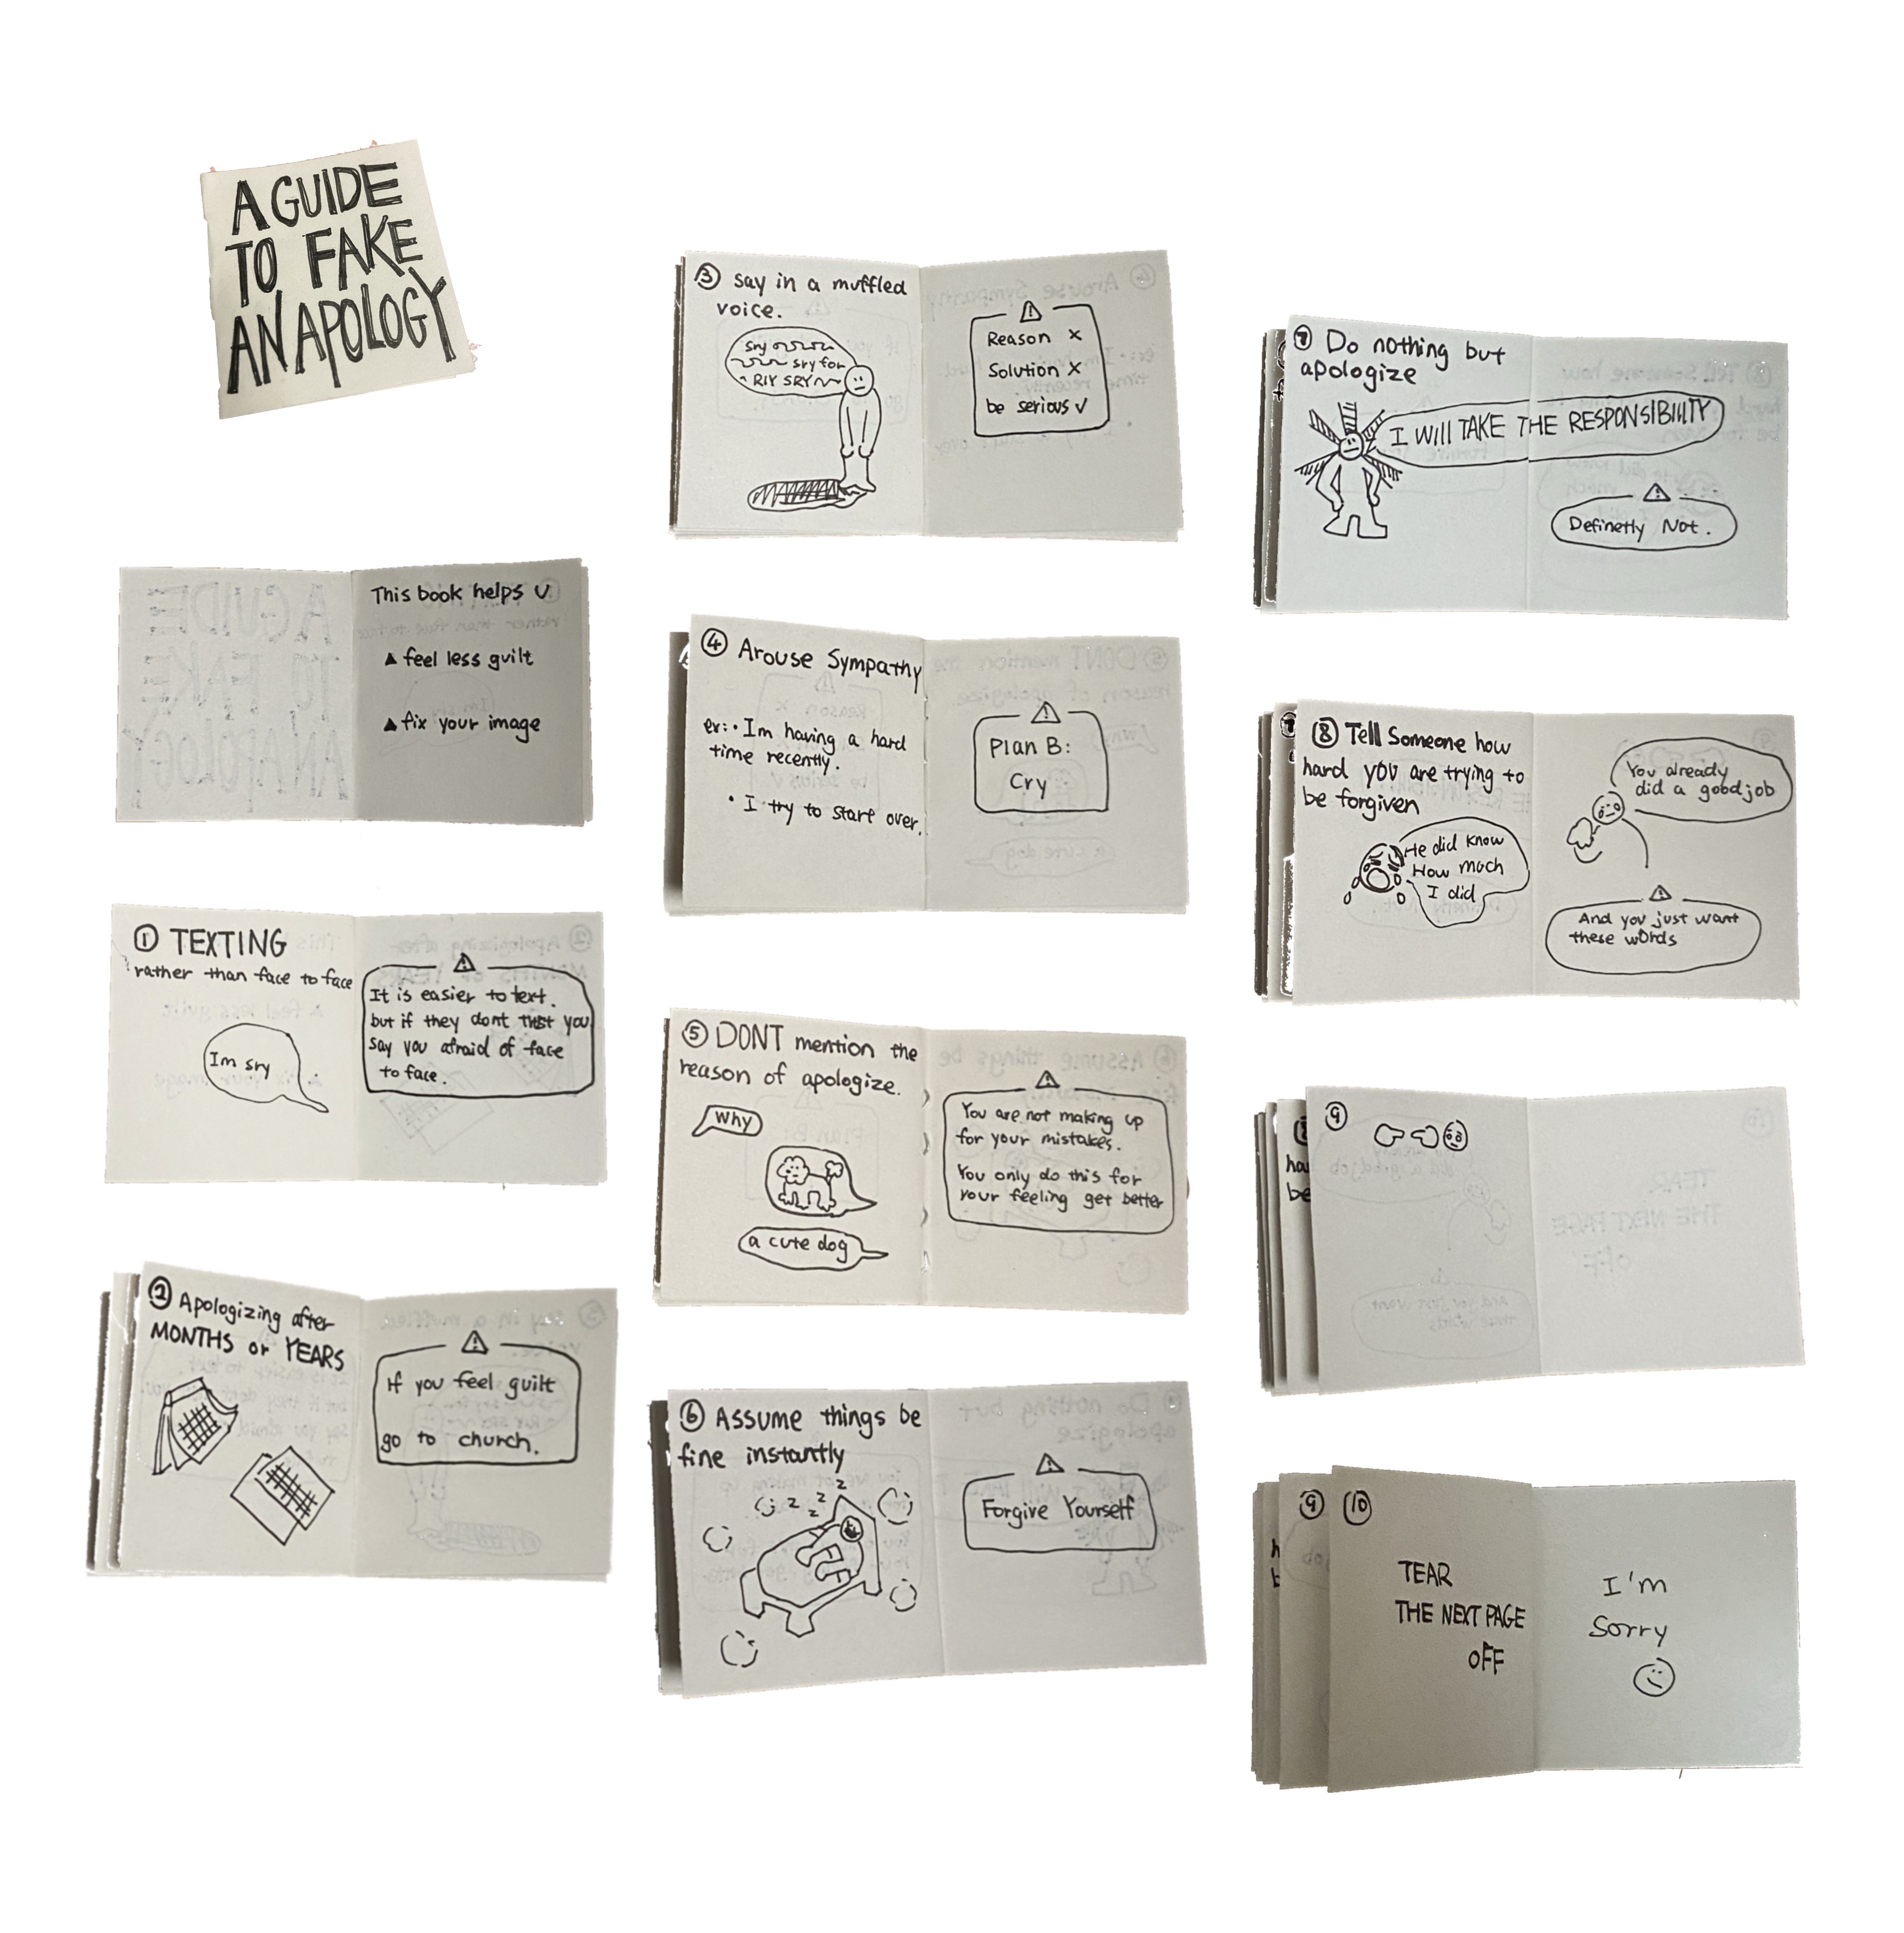 A GUIDE
TO FAKE
AN APOLOGY
This book helps U
▲ feel less guilt
▲ fix your image
① TEXTING
rather than face to face
Im sry
It is easier to text.
but if they dont trust you
say you afraid of face
to face.
② Apologizing after
MONTHS or YEARS
If you feel guilt
go to church.
③ say in a muffled
voice.
sry
sry for
RLY SRY
Reason ×
Solution ×
be serious ✓
④ Arouse Sympathy
ex: • Im having a hard
time recently.
• I try to start over.
Plan B:
Cry
⑤ DONT mention the
reason of apologize.
Why
a cute dog
You are not making up
for your mistakes.
You only do this for
your feeling get better
⑥ Assume things be
fine instantly
z z z z
Forgive Yourself
⑦ Do nothing but
apologize
I WILL TAKE THE RESPONSIBILITY
Definetly Not.
⑧ Tell Someone how
hard you are trying to
be forgiven
He did know
How much
I did
You already
did a good job
And you just want
these words
⑨
⑨ ⑩
TEAR
THE NEXT PAGE
OFF
I'm
Sorry